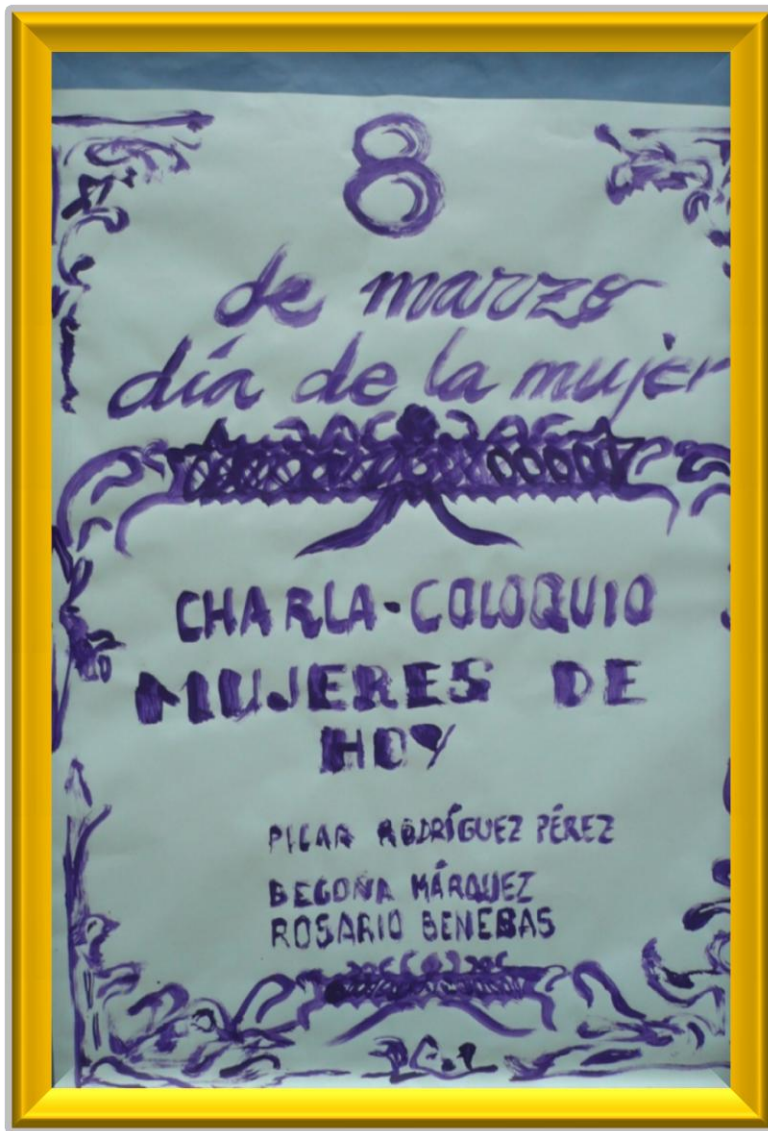 8
de marzo
día de la mujer
CHARLA-COLOQUIO
MUJERES DE
HOY
PILAR RODRÍGUEZ PÉREZ
BEGOÑA MÁRQUEZ
ROSARIO BENEBAS